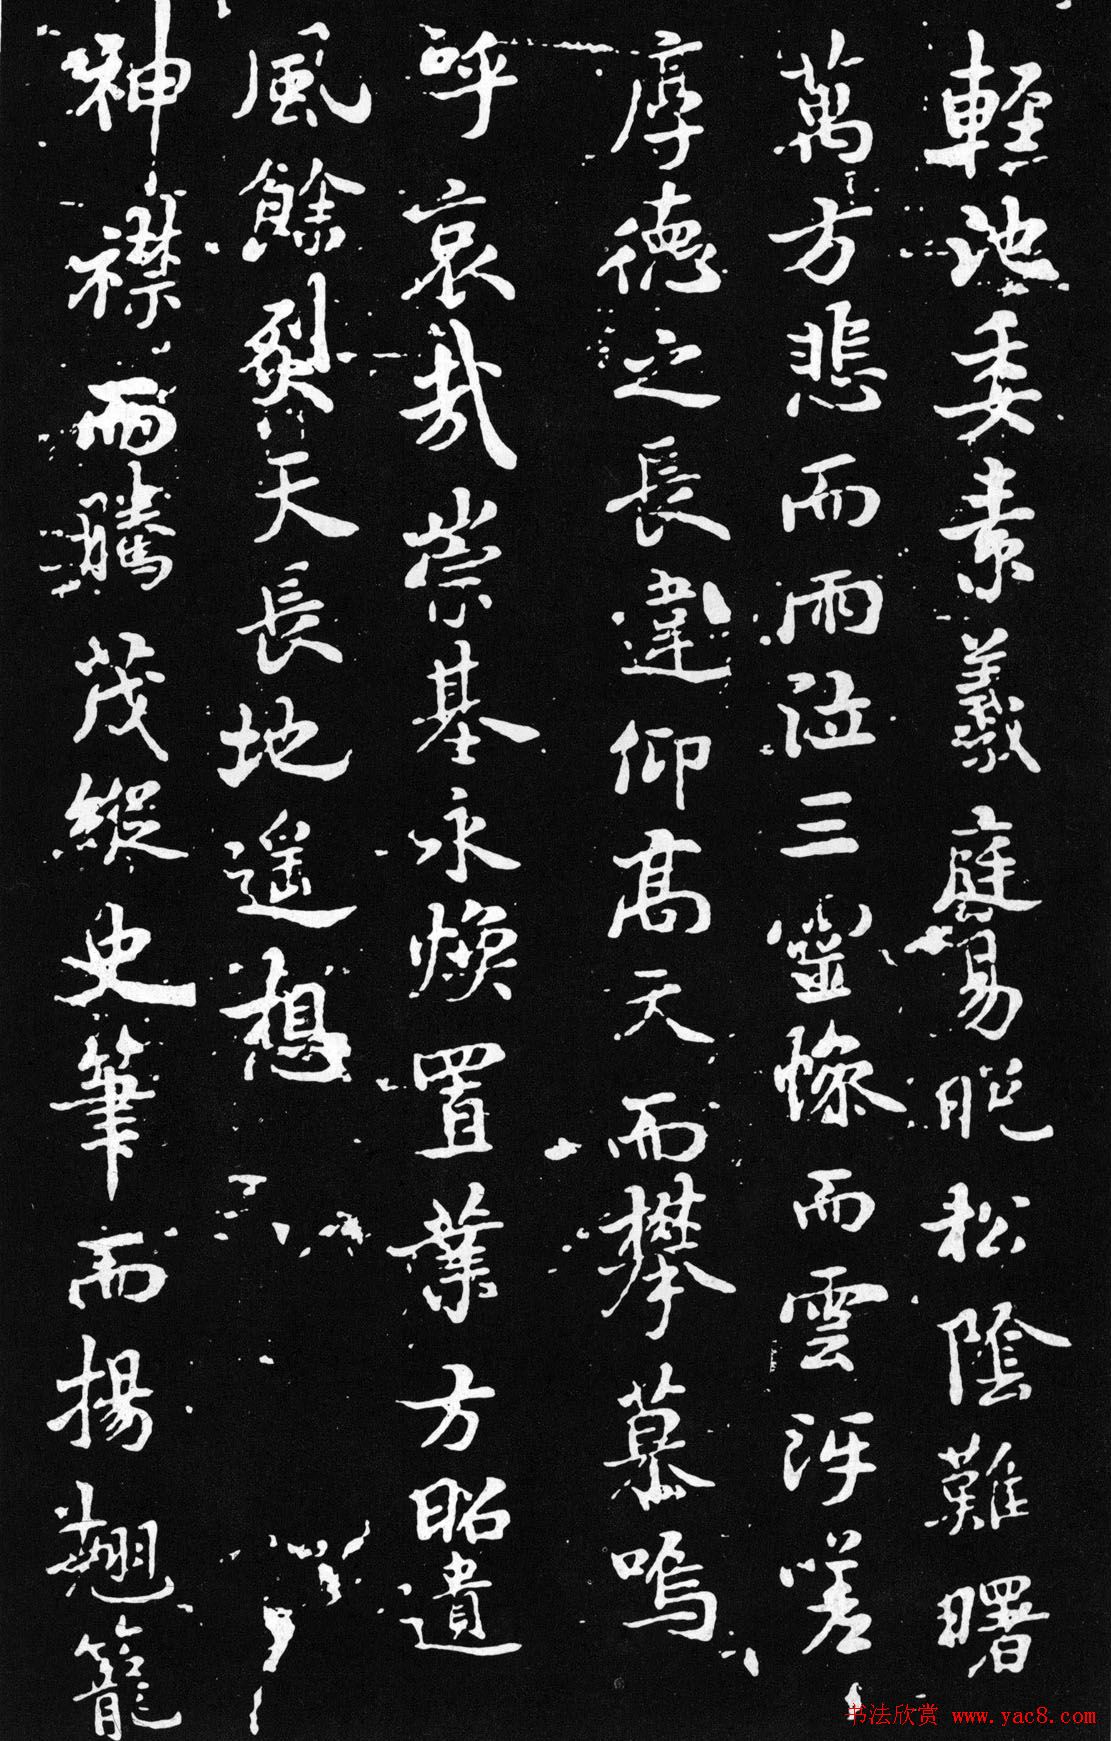 輕池委素羲庭易晚松陰難曙
萬方悲而雨泣三靈慘而雲沍嗟
厚德之長違仰高天而攀慕嗚
呼哀哉崇基永煥置業方昭遺
風餘烈天長地遥想
神襟而騰茂縱史筆而揚翹籠
书法欣赏 www.yac8.com